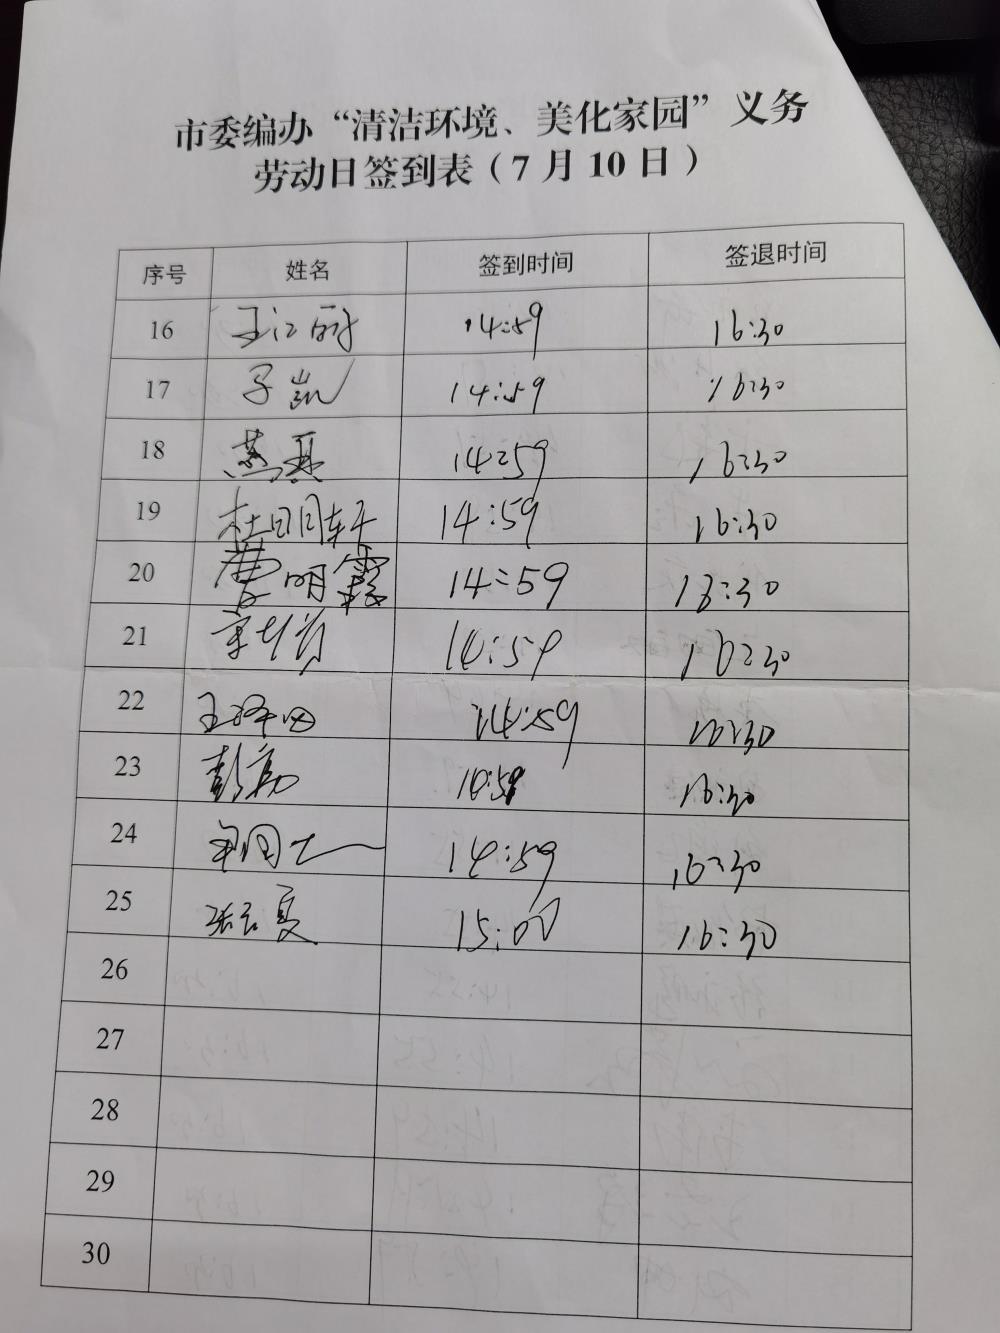 市委编办“清洁环境、美化家园”义务
劳动日签到表（7月10日）
序号 姓名 签到时间 签退时间
16 王江丽 14:59 16:30
17 子凯 14:59 16:30
18 燕磊 14:59 16:30
19 杜明轩 14:59 16:30
20 曹明霞 14:59 16:30
21 14:59 16:30
22 王 田 14:59 16:30
23 彭亮 14:59 16:30
24 14:59 16:30
25 张云夏 15:00 16:30
26
27
28
29
30